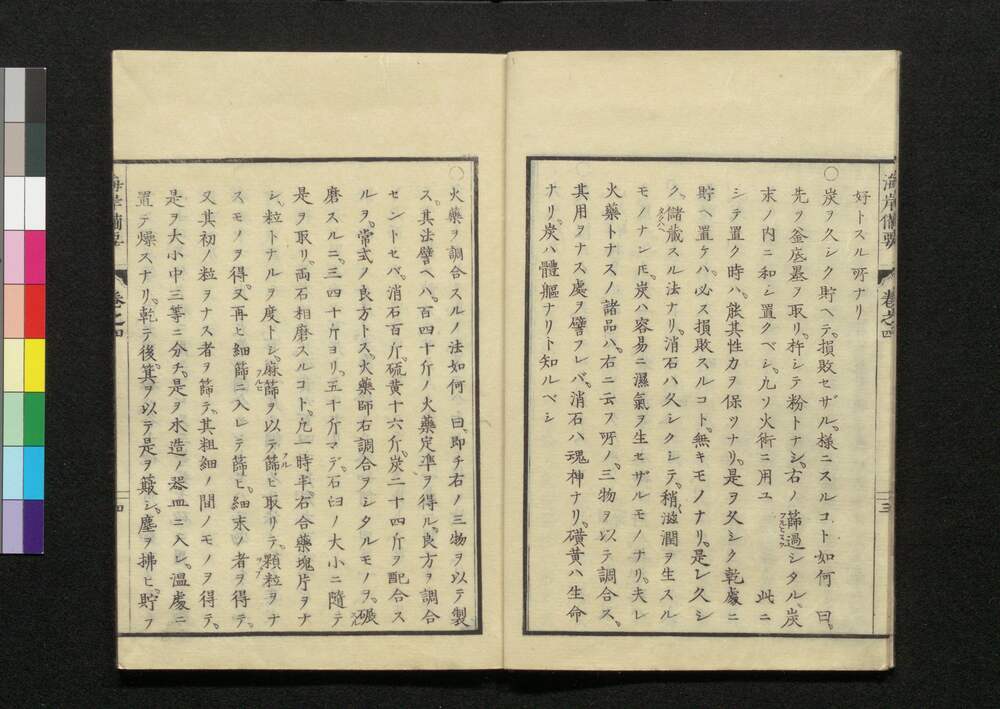 海岸備要 卷之四 三
好トスル呀ナリ
○炭ヲ久シク貯ヘテ。損敗セザル。樣ニスルコト如何 曰。
先ヲ釜底墨ヲ取リ。杵シテ粉トナシ。右ノ篩過シタル。炭
末ノ内ニ和シ置クベシ。凢ソ火術ニ用ユ 此ニ
シテ置ク時ハ。能其性力ヲ保ツナリ。是ヲ久シク乾處ニ
貯ヘ置ケバ。必ス損敗スルコト。無キモノナリ。是レ久シ
ク。儲藏スル法ナリ。消石ハ久シクシテ。稍滋潤ヲ生スル
モノナンㇾ𪜈。炭ハ容易ニ濕氣ヲ生セザルモノナリ。夫レ
火藥トナスノ諸品ハ。右ニ云フ呀ノ。三物ヲ以テ調合ス。
其用ヲナス處ヲ譬フレバ。消石ハ魂神ナリ。磺黄ハ生命
ナリ。炭ハ體軀ナリト知ルベシ
○火藥ヲ調合スルノ法如何 曰。即チ右ノ三物ヲ以テ製
ス。其法譬ヘハ。百四十斤ノ火藥定準ヲ得ル。良方ヲ調合
セントセバ。消石百斤。硫黄十六斤。炭二十四斤ヲ配合ス
ルヲ。常式ノ良方トス。火藥師右調合ヲシタルモノヲ。碾
磨スルニ。三四十斤ヨリ。五十斤マデ。石臼ノ大小ニ隨テ
是ヲ取リ。両石相磨スルコト。凢一時半。右合藥塊片ヲナ
シ。粒トナルヲ度トシ。麻篩ヲ以テ篩ヒ取リテ。顆粒ヲナ
スモノヲ得。又再ヒ細篩ニ入レテ篩ヒ。細末ノ者ヲ得テ。
又其初ノ粒ヲナス者ヲ篩テ。其粗細ノ間ノモノヲ得テ。
是ヲ大小中三等ニ分チ。是ヲ木造ノ器皿ニ入レ。温處ニ
置テ燥スナリ。乾テ後。箕ヲ以テ是ヲ簸シ。塵ヲ拂ヒ。貯フ
海岸備要 卷之四 四